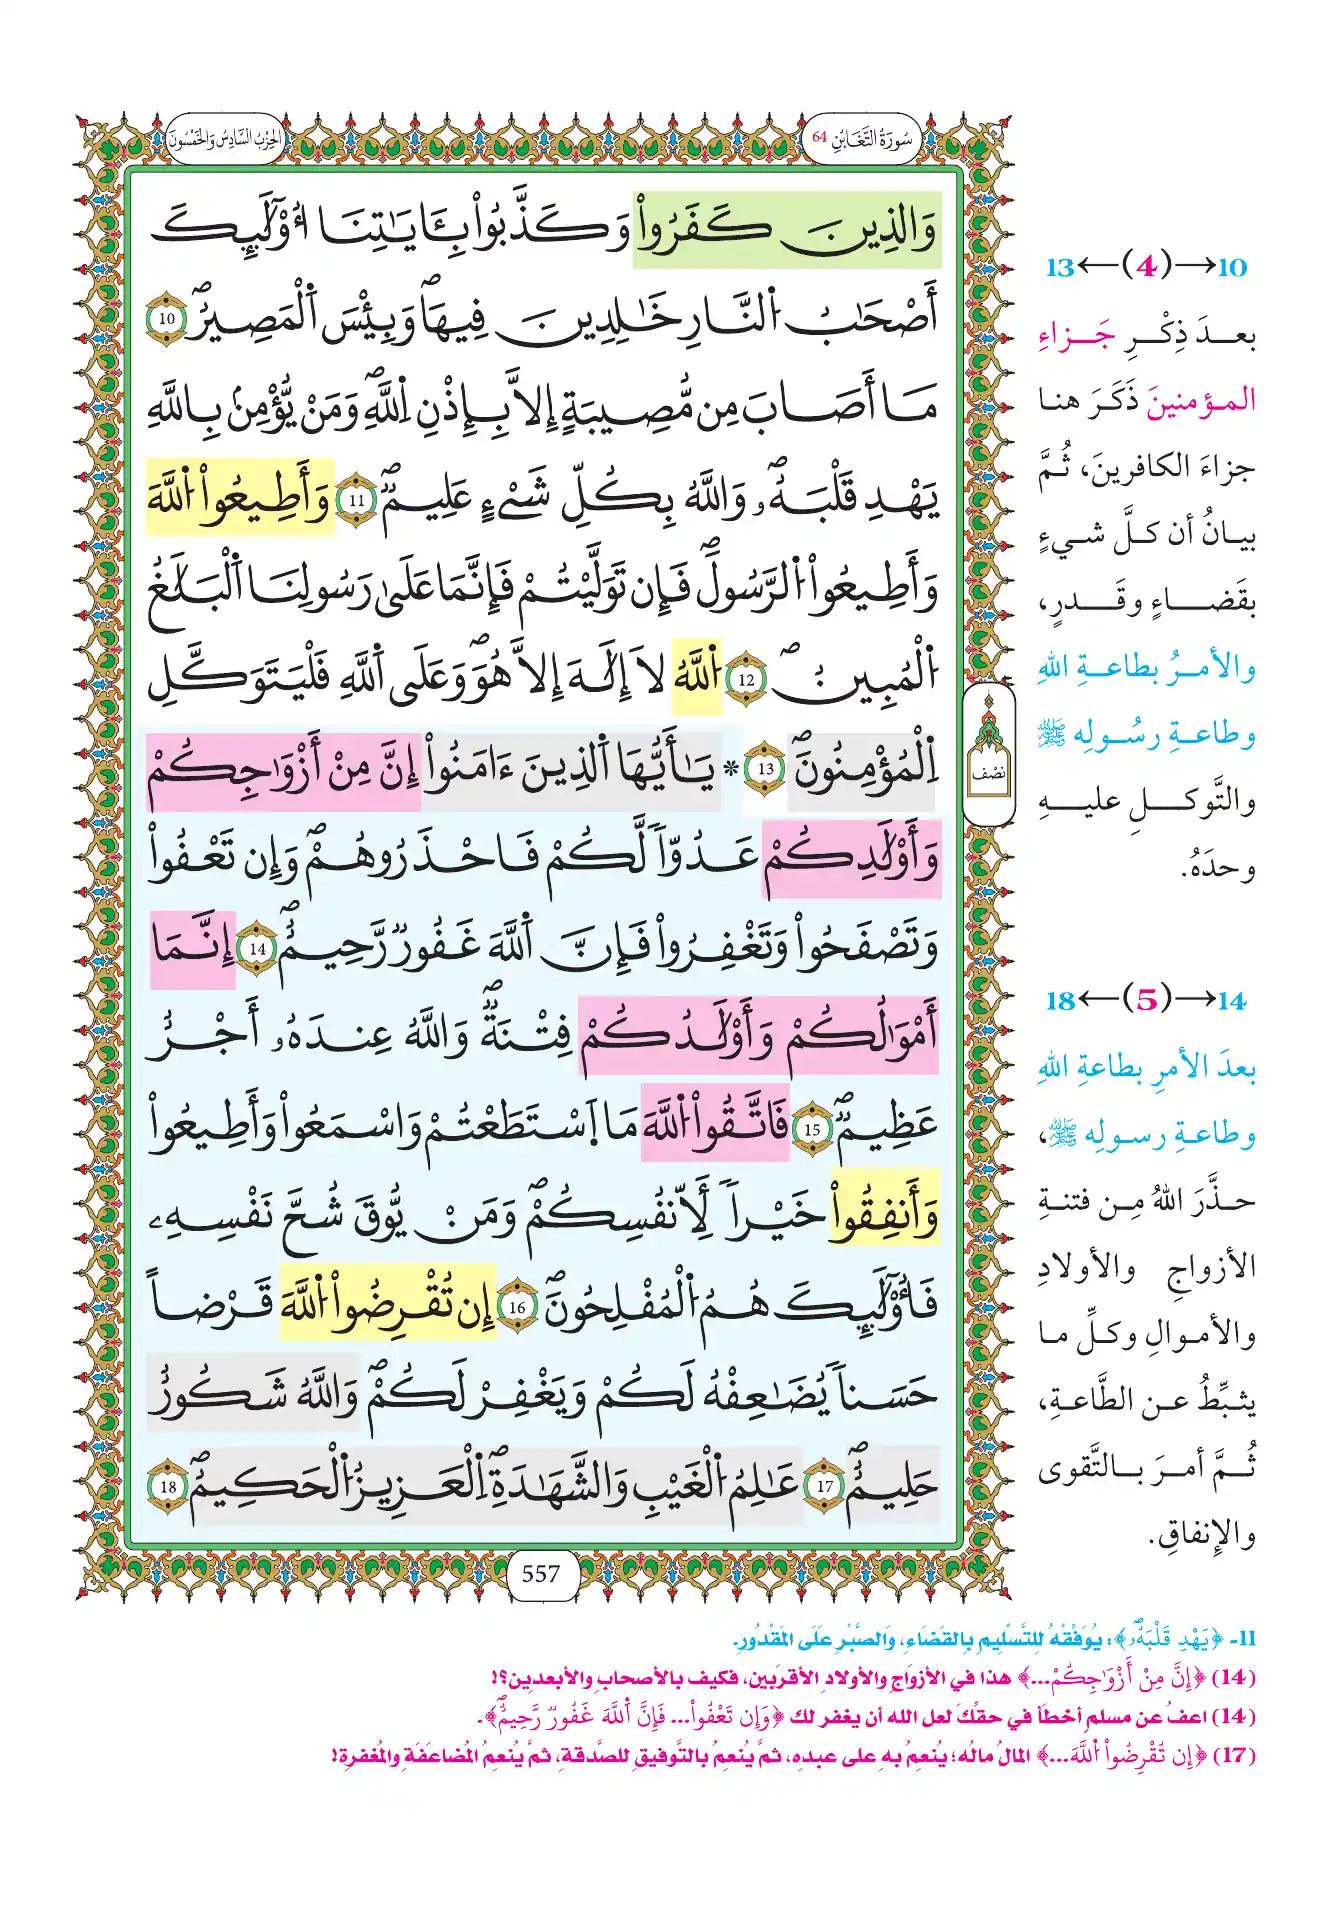 سُورَةُ التَّغَابُنِ 64
الحِزْبُ السَّادِسُ وَالخَمْسُونَ
وَالذِينَ كَفَرُواْ وَكَذَّبُواْ بِـَٔايَٰتِنَا أُوْلَٰٓئِكَ
أَصْحَٰبُ اُ۬لنَّارِ خَٰلِدِينَ فِيهَاۖ وَبِيسَ اَ۬لْمَصِيرُۖ 10
مَا أَصَابَ مِن مُّصِيبَةٍ إِلاَّ بِإِذْنِ اِ۬للَّهِۖ وَمَنْ يُّؤْمِنۢ بِاللَّهِ
يَهْدِ قَلْبَهُۥۖ وَاللَّهُ بِكُلِّ شَےْءٍ عَلِيمٞۖ 11 وَأَطِيعُواْ اُ۬للَّهَ
وَأَطِيعُواْ اُ۬لرَّسُولَۖ فَإِن تَوَلَّيْتُمْ فَإِنَّمَا عَلَىٰ رَسُولِنَا اَ۬لْبَلَٰغُ
اُ۬لْمُبِينُۖ 12 اُ۬للَّهُ لَا إِلَٰهَ إِلاَّ هُوَۖ وَعَلَى اَ۬للَّهِ فَلْيَتَوَكَّلِ
اِ۬لْمُؤْمِنُونَۖ 13 * يَٰأَيُّهَا اَ۬لذِينَ ءَامَنُواْ إِنَّ مِنْ أَزْوَٰجِكُمْ
وَأَوْلَٰدِكُمْ عَدُوّاٗ لَّكُمْ فَاحْذَرُوهُمْۖ وَإِن تَعْفُواْ
وَتَصْفَحُواْ وَتَغْفِرُواْ فَإِنَّ اَ۬للَّهَ غَفُورٞ رَّحِيمٌۖ 14 إِنَّمَا
أَمْوَٰلُكُمْ وَأَوْلَٰدُكُمْ فِتْنَةٞۖ وَاللَّهُ عِندَهُۥ أَجْرٌ
عَظِيمٞۖ 15 فَاتَّقُواْ اُ۬للَّهَ مَا اَ۪سْتَطَعْتُمْ وَاسْمَعُواْ وَأَطِيعُواْ
وَأَنفِقُواْ خَيْراٗ لِّأَنفُسِكُمْۖ وَمَنْ يُّوقَ شُحَّ نَفْسِهِۦ
فَأُوْلَٰٓئِكَ هُمُ اُ۬لْمُفْلِحُونَۖ 16 إِن تُقْرِضُواْ اُ۬للَّهَ قَرْضاً
حَسَناٗ يُضَٰعِفْهُ لَكُمْ وَيَغْفِرْ لَكُمْۖ وَاللَّهُ شَكُورٌ
حَلِيمٌۖ 17 عَٰلِمُ اُ۬لْغَيْبِ وَالشَّهَٰدَةِۖ اِ۬لْعَزِيزُ اُ۬لْحَكِيمُۖ 18
نصْف
557
10→(4)←13
بعدَ ذِكْرِ جَزاءِ
المؤمنينَ ذَكَرَ هنا
جزاءَ الكافرينَ، ثُمَّ
بيانُ أن كلَّ شيءٍ
بقَضاءٍ وقَدرٍ،
والأمرُ بطاعةِ اللهِ
وطاعةِ رسُولِه ﷺ
والتَّوكلِ عليهِ
وحدَهُ.
14→(5)←18
بعدَ الأمرِ بطاعةِ اللهِ
وطاعةِ رسولِه ﷺ،
حذَّرَ اللهُ مِن فتنةِ
الأزواجِ والأولادِ
والأموالِ وكلِّ ما
يثبِّطُ عن الطَّاعةِ،
ثُمَّ أمرَ بالتَّقوى
والإنفاقِ.
11- ﴿يَهْدِ قَلْبَهُۥۖ﴾: يُوَفِّقْهُ لِلتَّسْلِيمِ بِالقَضَاءِ، وَالصَّبْرِ عَلَى المَقْدُورِ.
(14) ﴿إِنَّ مِنْ أَزْوَٰجِكُمْ...﴾ هذا في الأزواجِ والأولادِ الأقربين، فكيف بالأصحابِ والأبعدين؟!
(14) اعفُ عن مسلمٍ أخطأ في حقِّكَ لعل الله أن يغفر لك ﴿وَإِن تَعْفُواْ... فَإِنَّ اَ۬للَّهَ غَفُورٞ رَّحِيمٌۖ﴾.
(17) ﴿إِن تُقْرِضُواْ اُ۬للَّهَ...﴾ المالُ مالُه؛ يُنعِمُ بِهِ على عبدِه، ثمَّ يُنعِمُ بالتَّوفيقِ للصَّدقةِ، ثمَّ يُنعِمُ المُضاعَفَةِ والمُغفرةِ!